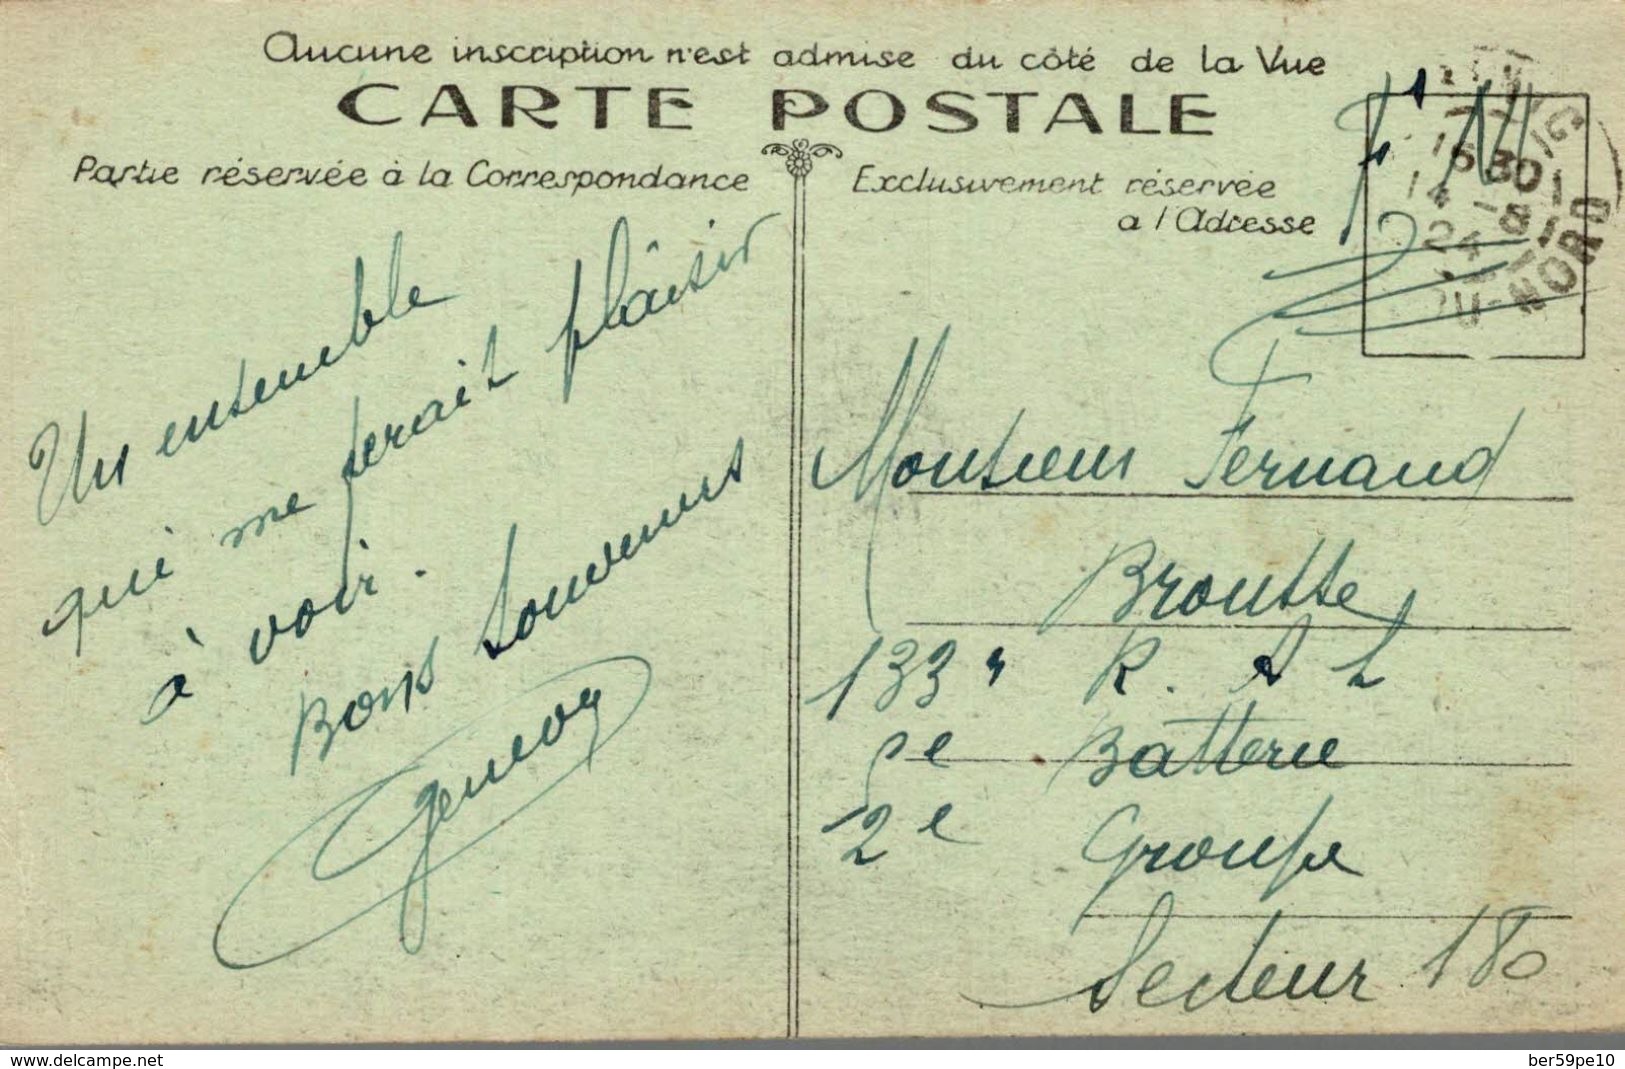 Aucune inscription n'est admise du côté de la Vue
CARTE POSTALE
Partie réservée à la Correspondance
Exclusivement réservée
a l'Adresse
F. M
15 30
14 - 8
24
NORD
Un ensemble
qui me ferait plaisir
à voir.
Bons souvenirs
Genevoy
Monsieur Fernand
Broutte
133e R. A L
Batterie
2e Groupe
Secteur 180
www.delcampe.net
ber59pe10